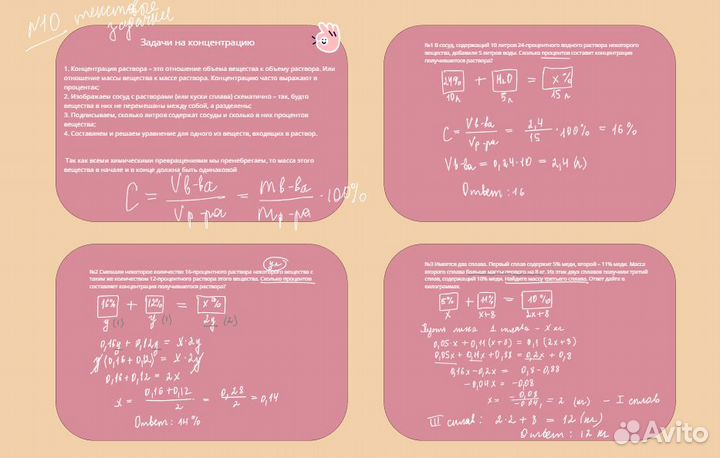 №10 текстовые
задачки
Задачи на концентрацию
1. Концентрация раствора – это отношение объема вещества к объему раствора. Или
отношение массы вещества к массе раствора. Концентрацию часто выражают в
процентах;
2. Изображаем сосуд с растворами (или куски сплава) схематично – так, будто
вещества в них не перемешаны между собой, а разделены;
3. Подписываем, сколько литров содержат сосуды и сколько в них процентов
вещества;
4. Составляем и решаем уравнение для одного из веществ, входящих в раствор.
Так как всеми химическими превращениями мы пренебрегаем, то масса этого
вещества в начале и в конце должна быть одинаковой
C = Vв-ва / Vр-ра = mв-ва / mр-ра · 100%
№1 В сосуд, содержащий 10 литров 24-процентного водного раствора некоторого
вещества, добавили 5 литров воды. Сколько процентов составит концентрация
получившегося раствора?
24% + H₂O = x%
10 л 5 л 15 л
C = Vв-ва / Vр-ра = 2,4 / 15 · 100% = 16%
Vв-ва = 0,24·10 = 2,4 (л)
Ответ: 16
№2 Смешали некоторое количество 16-процентного раствора некоторого вещества с
таким же количеством 12-процентного раствора этого вещества. Сколько процентов
составляет концентрация получившегося раствора?
16% + 12% = x%
y (1) y (1) 2y (2)
0,16y + 0,12y = x·2y
y(0,16 + 0,12) = x·2y
0,16 + 0,12 = 2x
x = 0,16 + 0,12 / 2 = 0,28 / 2 = 0,14
Ответ: 14%
№3 Имеется два сплава. Первый сплав содержит 5% меди, второй – 11% меди. Масса
второго сплава больше массы первого на 8 кг. Из этих двух сплавов получили третий
сплав, содержащий 10% меди. Найдите массу третьего сплава. Ответ дайте в
килограммах.
5% + 11% = 10%
x x+8 2x+8
Пусть масса 1 сплава – x кг
0,05·x + 0,11(x+8) = 0,1(2x+8)
0,05x + 0,11x + 0,88 = 0,2x + 0,8
0,16x - 0,2x = 0,8 - 0,88
-0,04x = -0,08
x = -0,08 / -0,04 = 2 (кг) – I сплав
III сплав: 2·2 + 8 = 12 (кг)
Ответ: 12 кг
Avito